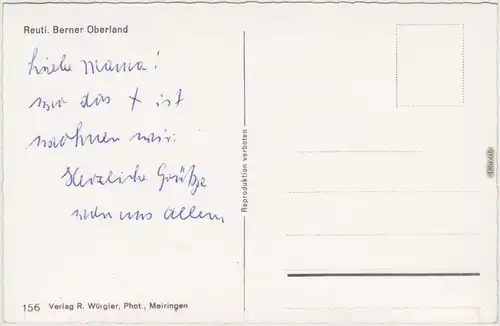 Reuti. Berner Oberland
Liebe Mama!
wo das + ist
wohnen wir.
Herzliche Grüße
von uns allen,
Reproduktion verboten
156 Verlag R. Würgler, Phot., Meiringen